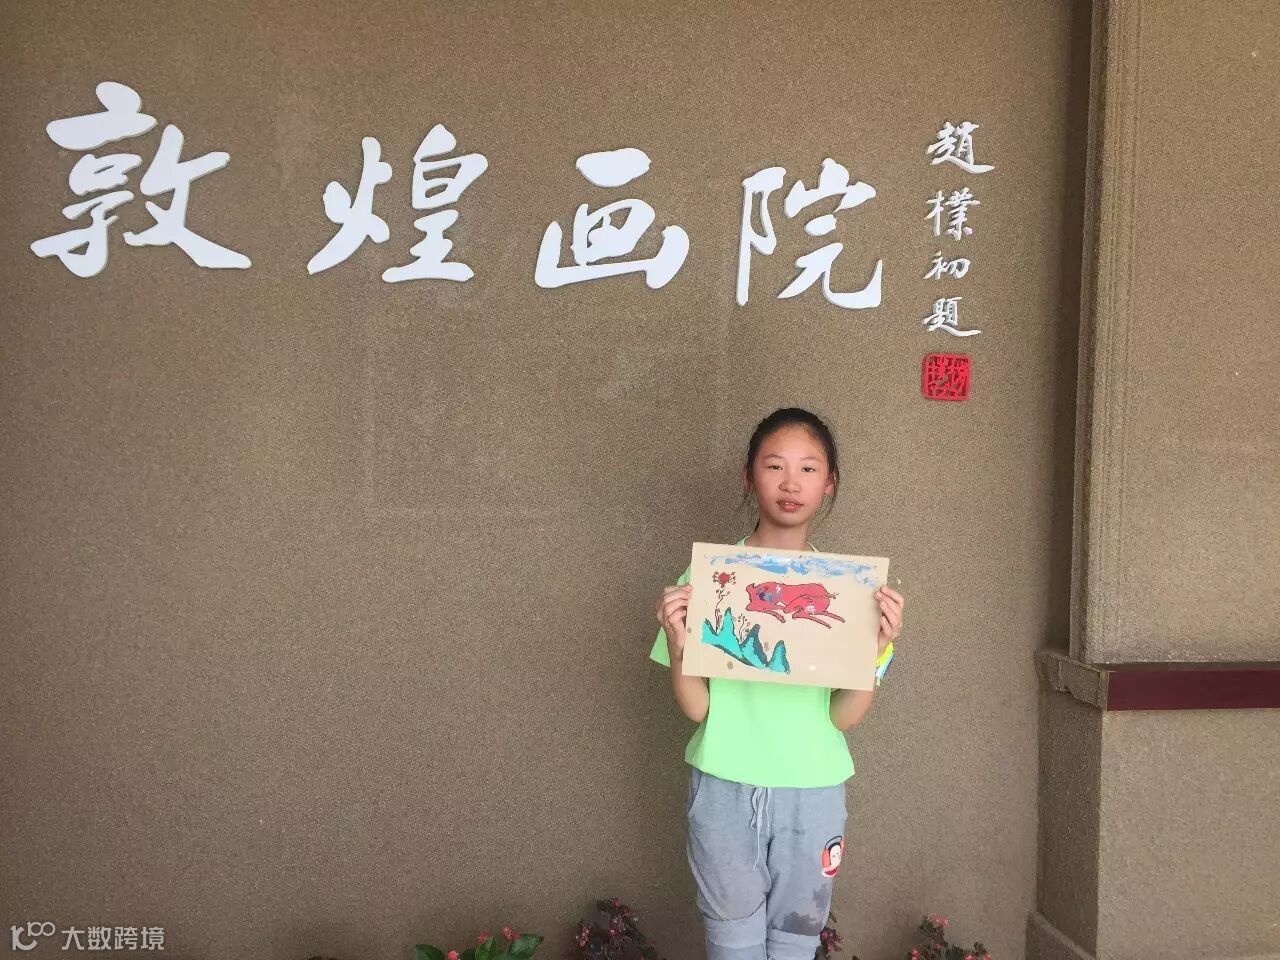 敦煌画院
趙樸初題
大数跨境